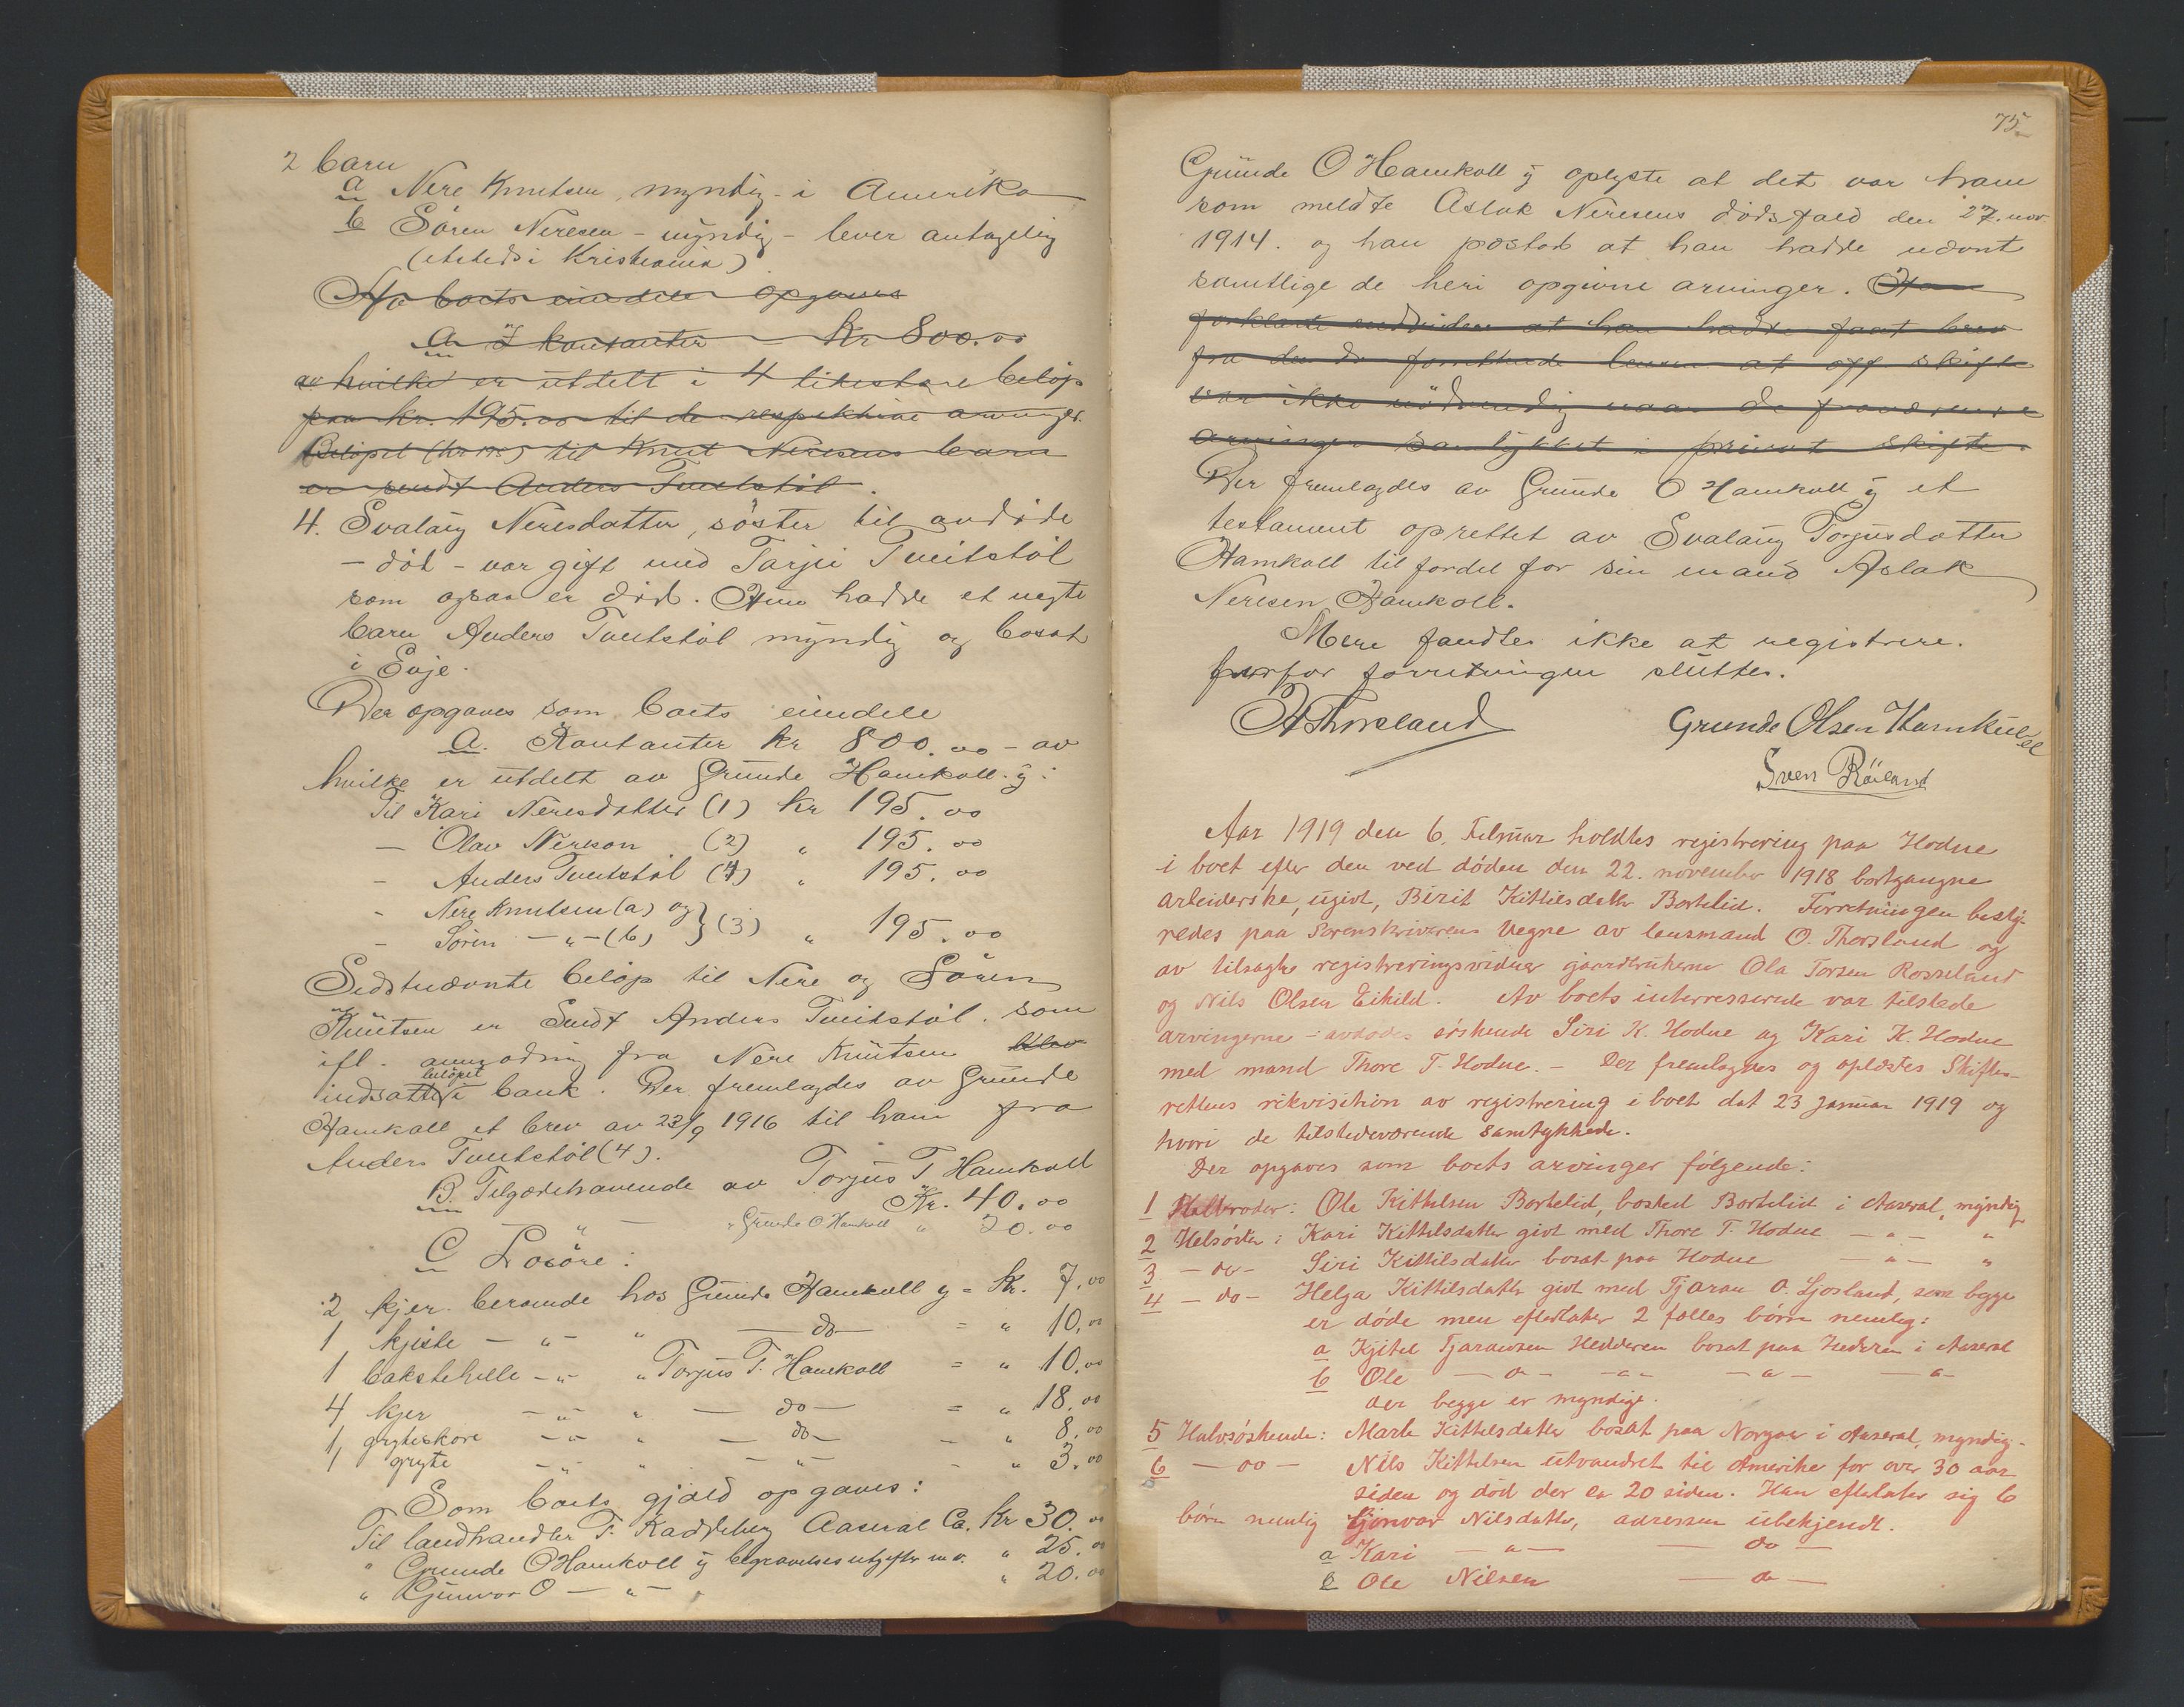 2 barn
a Nere Knutsen, myndig - i Amerika
b Sören Neresen - myndig - lever antagelig
(etsteds i Kristiania)
Av boets eiendele opgaves
a I kontanter — Kr 800.00
av hvilke er utdelt i 4 likestore beløp
paa kr. 195.00 til de respektive arvinger.
Beløpet (kr 195) til Knut Neresens barn
er sendt Anders Tveitstöl.
4. Svalaug Neresdatter, söster til avdöde
- död - var gift med Tarjei Tveitstöl
som ogsaa er död. Hun hadde et uegte
barn Anders Tveitstöl myndig og bosat
i Evje.
Der opgaves som boets eiendele
A. Kontanter kr 800.00 - av
hvilke er utdelt av Gunde Hamkoll y:
Til Kari Neresdatter (1) kr 195.00
— Olav Nerson (2) " 195.00
- Anders Tveitstöl (4) " 195.00
- Nere Knutsen (a) og } (3)
- Sören — " — (b) } " 195.00
Sidstnævnte beløp til Nere og Sören
Knutsen er Sendt Anders Tveitstöl som
ifl. anmodning fra Nere Knutsen blev
beløpet
indsatte i bank. Der fremlagdes av Gunde
Hamkoll et brev av 23/9 1916 til ham fra
Anders Tveitstöl (4).
B. Tilgodehavende av Torjus T Hamkoll
Kr. 40.00
— " — " Gunde O Hamkoll " 20.00
C Løsöre:
2 kjer beroende hos Gunde Hamkoll y = Kr. 7.00
1 kjiste — " — " — do — = " 10.00
1 bakstehelle - " - " Torjus T. Hamkoll = " 10.00
4 kjer - " - " — do — = " 18.00
1 gryteskore - " - " — do — - " 8.00
1 gryte - " - " — " — - " 3.00
Som boets gjæld opgaves:
Til landhandler T. Kaddeberg Aaseral Ca. Kr 30.00
" Gunde O Hamkoll y begravelsesutgifter m.v. " 25.00
" Gunvor O — " — " 20.00
75
Gunde O Hamkoll y oplyste at det var ham
som meldte Aslak Neresens dødsfald den 27. nov.
1914. og han paastod at han hadde nævnt
samtlige de heri opgivne arvinger. Han
forklarte endvidere at han hadde faat brev
fra den da forrettende lensm. at off. skifte
var ikke nödvendig naar de fraværende
arvinger samtykket i privat skifte.
Der fremlagdes av Gunde O Hamkoll y et
testament oprettet av Svalaug Torjusdatter
Hamkoll til fordel for sin mand Aslak
Neresen Hamkoll.
Mere fandtes ikke at registrere.
hvorfor forretningen sluttes.
O Thorsland
Grunde Olsen Hamkoll
Sven Röiland
Aar 1919 den 6. Februar holdtes registrering paa Hodne
i boet efter den ved döden den 22. november 1918 bortgangne
arbeiderske, ugivt, Berit Kittilsdatter Bortelid. Forretningen besty-
redes paa Sorenskriverens vegne av lensmand O. Thorsland og
av tilsagte registreringsvidner gaardbrukerne Ola Torsen Rosseland
og Nils Olsen Eikild. Av boets interresserede var tilstede
arvingerne - avdødes søskende Siri K. Hodne og Kari K. Hodne
med mand Thore T. Hodne. - Der fremlagdes og oplæstes Skifte-
rettens rikvisition av registrering i boet dat 23 Januar 1919 og
hvori de tilstedeværende samtykkede.
Der opgaves som boets arvinger følgende:
1 Helbroder: Ole Kittilsen Bortelid, bosted Bortelid i Aaseral, myndig
2 Helsöster: Kari Kittilsdatter givt med Thore T. Hodne — " — "
3 — do — Siri Kittilsdatter bosat paa Hodne — " — "
4 — do — Helga Kittilsdatter givt med Tjaran O. Ljosland, som begge
er døde men efterlater 2 fælles børn nemlig:
a Kjitel Tjaransen Hedderen bosat paa Hedderen i Aaseral
b Ole — " — — " — — " — — " —
der begge er myndige.
5 Halvsöskende: Marte Kittelsdatter bosat paa Norgaar i Aaseral, myndig.
6 — do — Nils Kittelsen utvandret til Amerika for over 30 aar
siden og död der ca 20 siden. Han efterlater sig 6
børn nemlig Gunvor Nilsdatter, adressen ubekjendt.
a Kari — " — — do —
b Ole Nilsen — do —